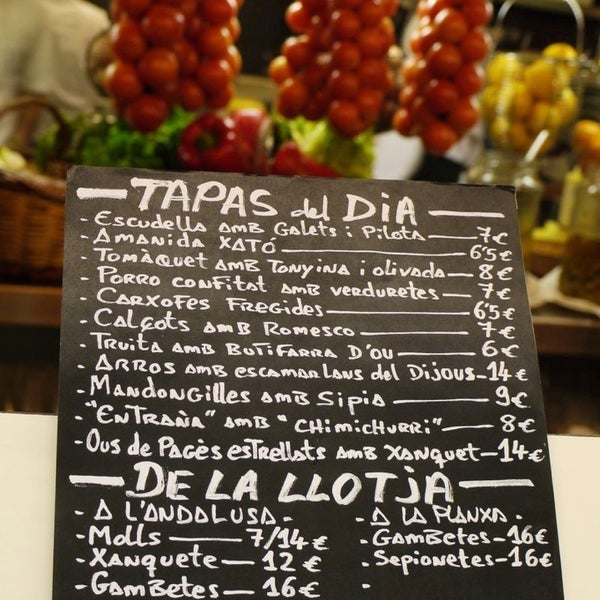 TAPAS del DIA
- Escudella amb Galets i Pilota — 7€
- Amanida Xató — 6'5€
- Tomàquet amb Tonyina i olivada — 8€
- Porro confitat amb verduretes — 7€
- Carxofes Fregides — 6'5€
- Calçots amb Romesco — 7€
- Truita amb Butifarra d'ou — 6€
- Arros amb escamarlans del Dijous — 14€
- Mandongilles amb Sipia — 9€
- "Entraña" amb "chimichurri" — 8€
- Ous de Pagès estrellats amb xanquet — 14€
DE LA LLOTJA
- A L'ANDALUSA -
- Molls — 7/14€
- Xanquete — 12€
- Gambetes — 16€
- A LA PLANXA -
- Gambetes — 16€
- Sepionetes — 16€
-